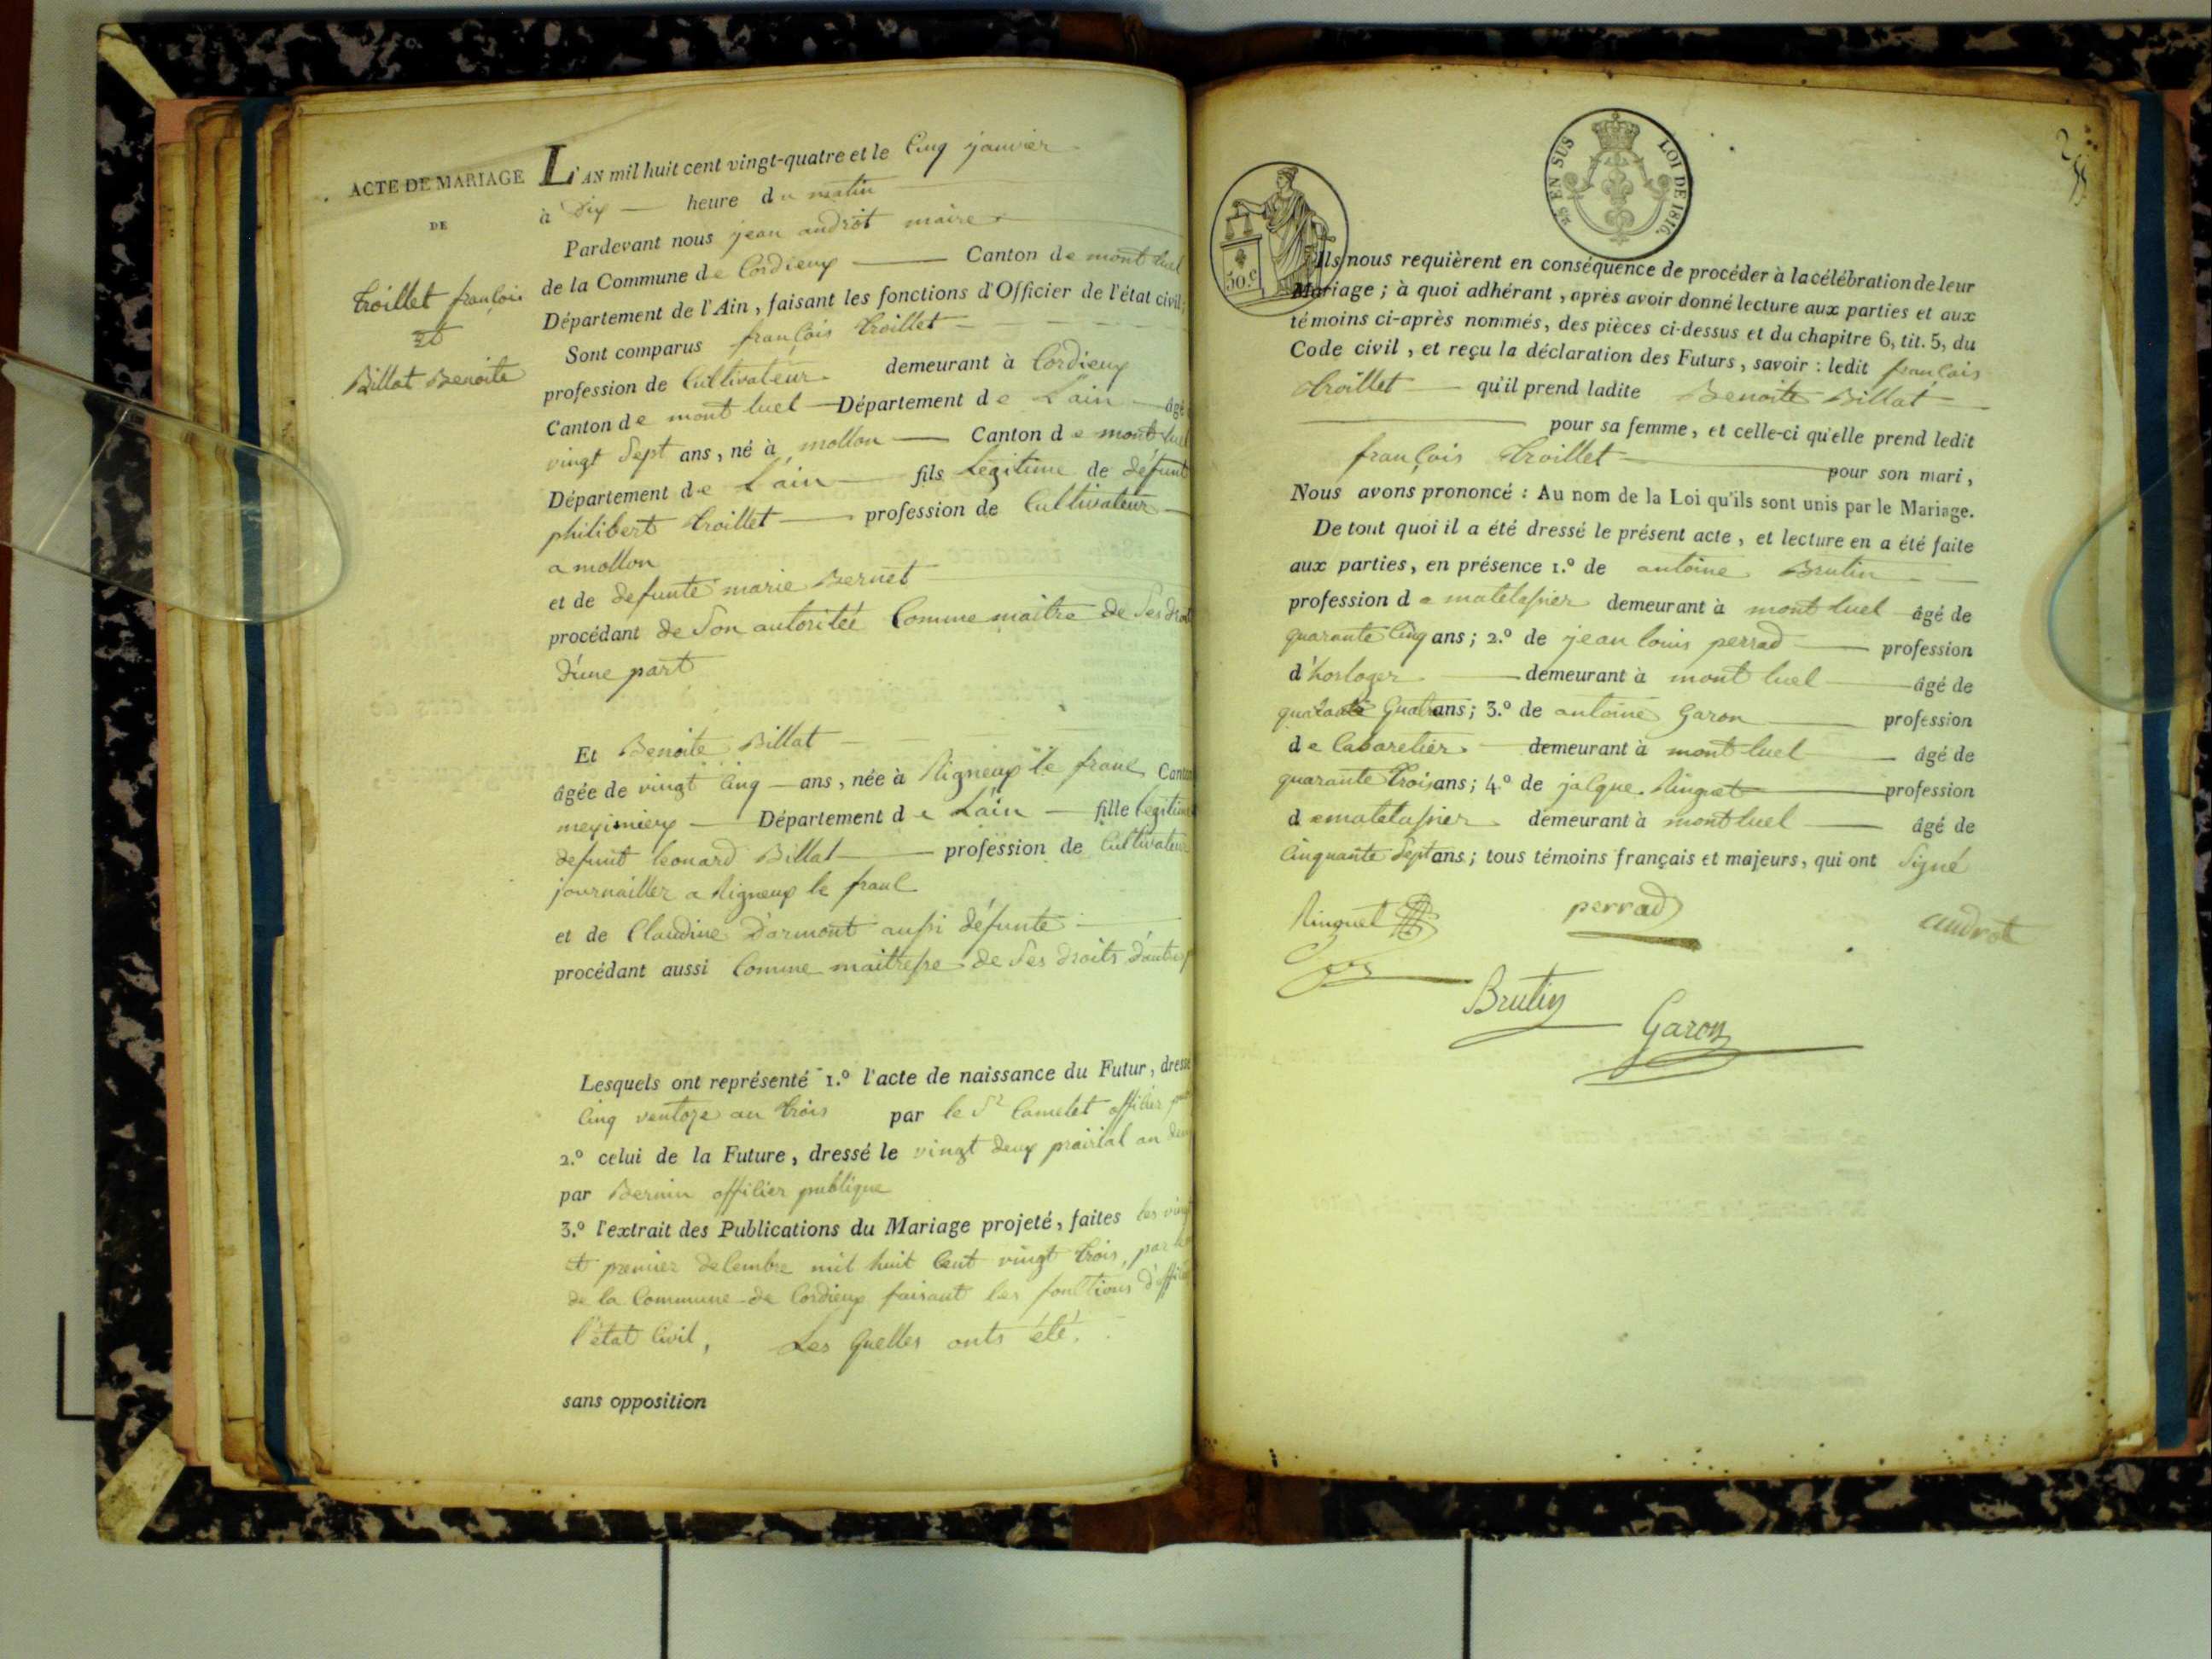 ACTE DE MARIAGE
DE
troillet françois
et
Billat Benoite
L'AN mil huit cent vingt-quatre et le Cinq janvier
à Dix heure du matin
Pardevant nous jean androt maire
de la Commune de Cordieux Canton de mont luel
Département de l'Ain, faisant les fonctions d'Officier de l'état civil;
Sont comparus françois troillet
profession de Cultivateur demeurant à Cordieux
Canton de mont luel Département de L'ain âgé
vingt Sept ans, né à mollon Canton de mont luel
Département de L'ain fils Légitime de défunt
philibert troillet profession de Cultivateur
a mollon
et de defunte marie Bernet
procédant de Son autoritée Comme maitre de Ses droit
d'une part
Et Benoite Billat
âgée de vingt Cinq ans, née à Rigneux le franc Canton
meximieux Département de L'ain fille legitime
defunt leonard Billat profession de Cultivateur
journailler a Rigneux le franc
et de Claudine Darmont aussi défunte
procédant aussi Comme maitresse de Ses droits d'autre p
Lesquels ont représenté 1.º l'acte de naissance du Futur, dressé
Cinq ventoze an trois par le Sr Camelet officier
2.º celui de la Future, dressé le vingt deux prairial an
par Bernin officier publique
3.º l'extrait des Publications du Mariage projeté, faites les vingt
et premier decembre mil huit Cent vingt trois, par
de la Commune de Cordieux faisant les fonctions d'offi
l'état Civil, Les quelles onts été.
sans opposition
25 EN SUS LOI DE 1816.
50.c
Ils nous requièrent en conséquence de procéder à la célébration de leur
Mariage; à quoi adhérant, après avoir donné lecture aux parties et aux
témoins ci-après nommés, des pièces ci-dessus et du chapitre 6, tit. 5, du
Code civil, et reçu la déclaration des Futurs, savoir: ledit françois
troillet qu'il prend ladite Benoite Billat
pour sa femme, et celle-ci qu'elle prend ledit
françois troillet pour son mari,
Nous avons prononcé: Au nom de la Loi qu'ils sont unis par le Mariage.
De tout quoi il a été dressé le présent acte, et lecture en a été faite
aux parties, en présence 1.º de antoine Brutin
profession de matelassier demeurant à mont luel âgé de
quarante Cinq ans; 2.º de jean louis perrad profession
d'horloger demeurant à mont luel âgé de
quarante quatre ans; 3.º de antoine Garon profession
de Cabaretier demeurant à mont luel âgé de
quarante trois ans; 4.º de jacque Ringuet profession
de matelassier demeurant à mont luel âgé de
Cinquante Sept ans; tous témoins français et majeurs, qui ont Signé
Ringuet perrad androt
Brutin
Garon